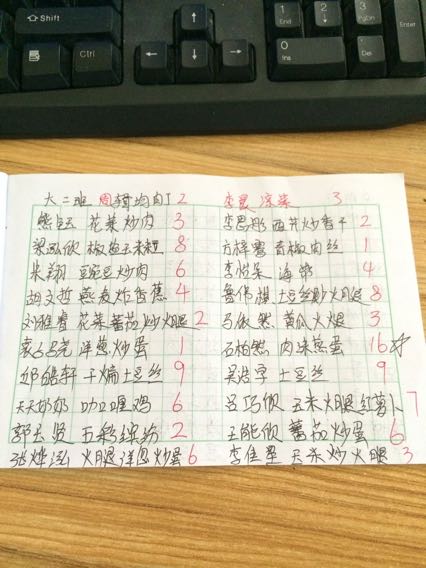 Shift
Ctrl
1
End
2
3
PgDn
Enter
0
Ins
Del
大二班 周 肉丁 2 李昱 凉菜 3
熊钰 花菜炒肉 3 李思彤 西芹炒香干 2
梁泓欣 椒盐玉米粒 8 方梓骞 青椒肉丝 1
朱翔 豌豆炒肉 6 李悦 海带 4
胡文哲 燕麦炸香蕉 4 鲁伟 土豆丝炒火腿 8
刘雅睿 花菜蕃茄炒火腿 2 马依然 黄瓜火腿 3
袁 洋葱炒蛋 1 石柏然 肉沫蒸蛋 16
邓皓轩 干煸土豆丝 9 吴浩宇 土豆丝 9
天天奶奶 咖喱鸡 6 吕巧欣 玉米火腿红萝卜 7
郭天贤 五彩缤纷 2 王能欣 蕃茄炒蛋 6
张烨泓 火腿洋葱炒蛋 6 李佳 炒火腿 3